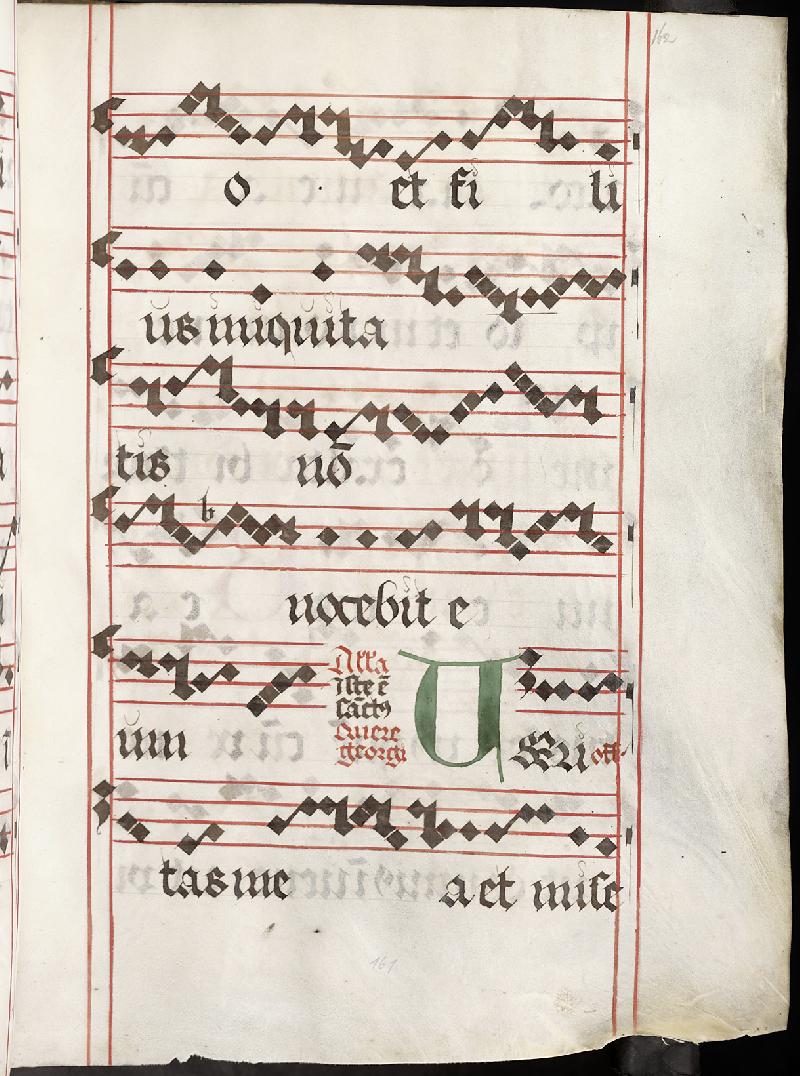 162
o et fi li
us iniquita
tis nō
b
nocebit e
um
Alla
iste ē
sāctꝯ
Quere
georgi
VERI off
tas me a et mise
161